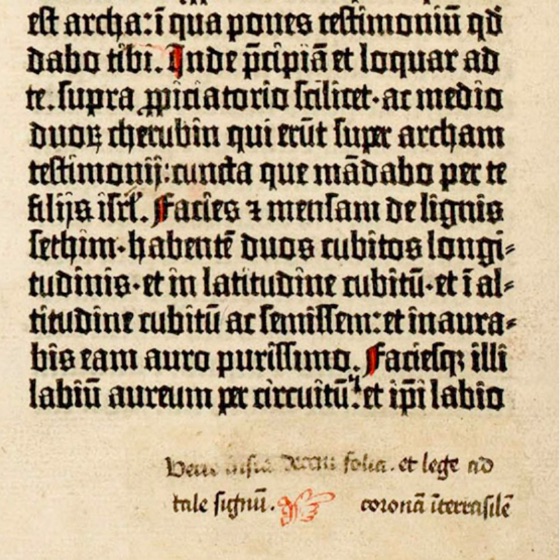 est archa: ī qua pones testimoniū qd̄
dabo tibi. Inde p̄cipiā et loquar ad
te. supra ꝓpiciatorio scilicet· ac medio
duoꝝ cherubin qui erūt super archam
testimonij: cuncta que mādabo per te
filijs isrl̄. Facies ⁊ mensam de lignis
sethim· habentē duos cubitos longi⸗
tudinis· et in latitudine cubitū· et ī al⸗
titudine cubitū ac semissem: et inaura⸗
bis eam auro purissimo. Faciesqꝫ illi
labiū aureum per circuitū: et ip̄i labio
folia. et lege ad
tale signū. coronā īterrasilē